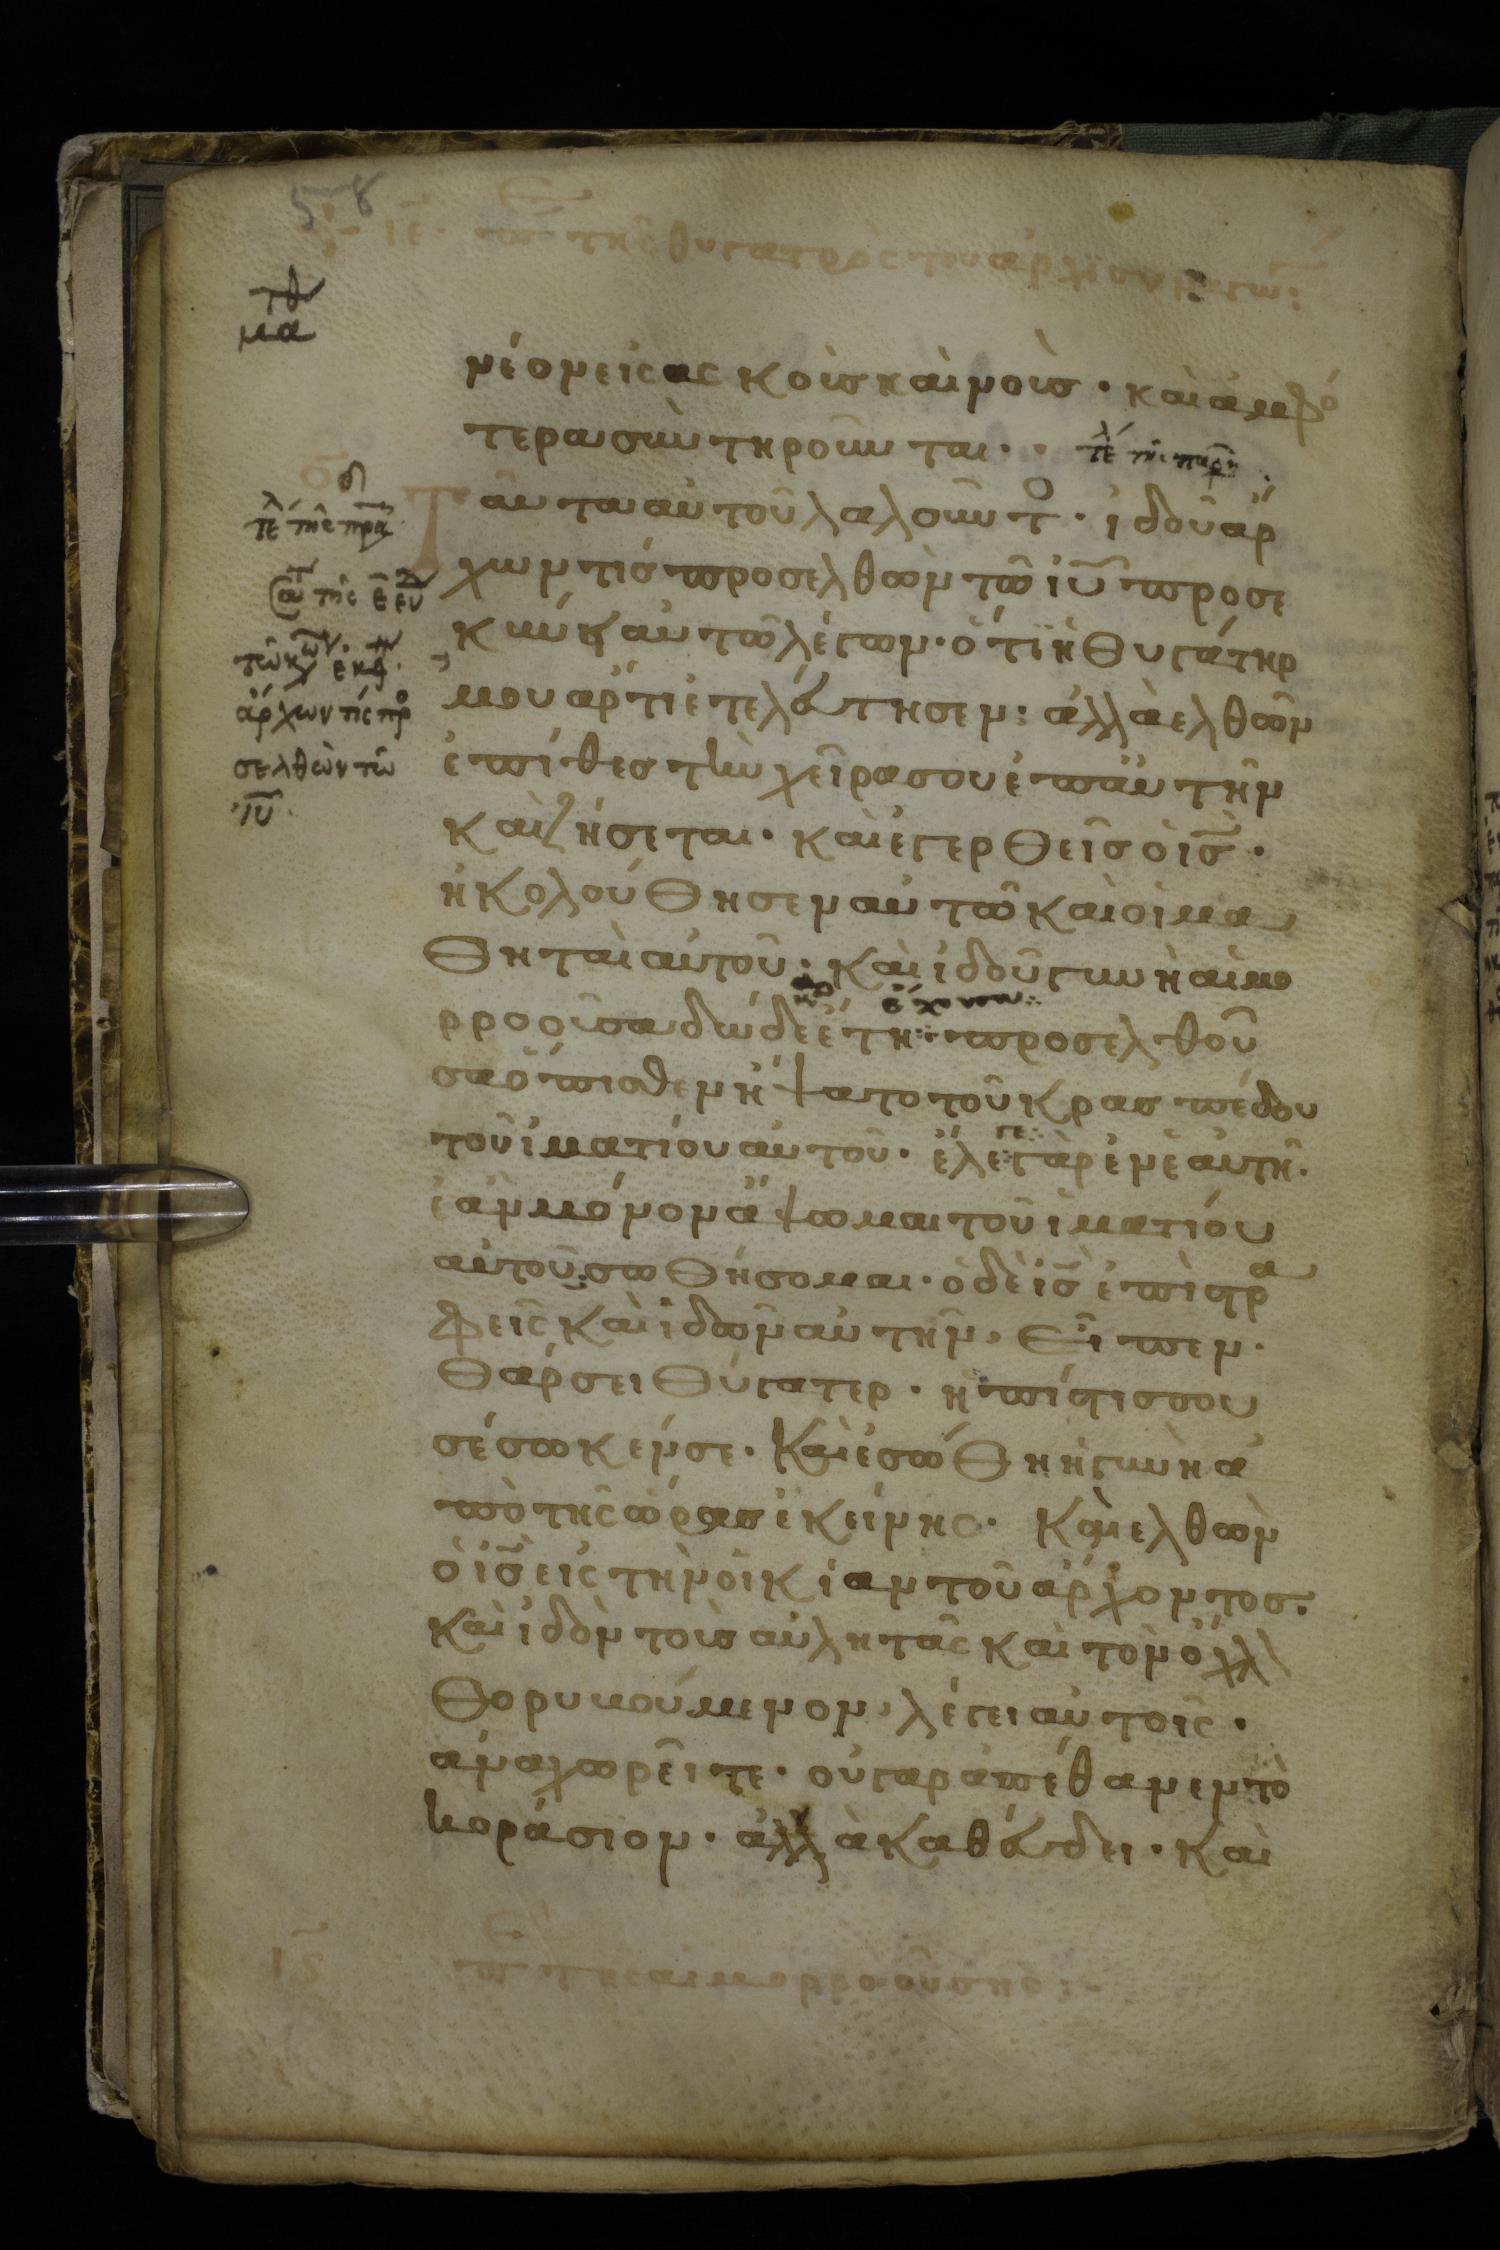 58
ιε. πε της θυγατρος του αρχισυναγωγ
μα
νέον εἰς ἀσκοὺς καινοὺς · καὶ ἀμφό
τεραι συντηροῦνται · · τε της παρ
Ταῦτα αὐτοῦ λαλοῦντο · ἰδοῦ ἄρ
χων τίς προσελθὼν τῶ ιυ προσε
κύνει αὐτῶ λέγων · ὅτι ἡ θυγάτηρ
μου ἄρτι ἐτελεύτησεν : ἀλλὰ ελθῶν
ἐπίθες τὴν χεῖρα σου ἐπ αὐτῆν
καὶ ζήσεται · καὶ ἐγερθεῖς ὁ ις ·
ἠκολούθησεν αὐτῶ καὶ οἱ μα
θηταὶ αὐτοῦ · καὶ ἰδοῦ γυνὴ αἱμο
ρροοῦσα δώδε ἔτη προσελθοῦ
σα ὄπισθεν ἥψατο τοῦ κρασπέδου
τοῦ ἱματίου αὐτοῦ · ἔλεγε γὰρ ἐν ἑαυτῆ ·
ἐὰν μόνον ἅψωμαι τοῦ ἱματίου
αὐτοῦ σωθήσομαι · ὁ δὲ ις ἐπιστρα
φεῖς καὶ ἰδῶν αὐτῆν, εἶπεν ·
θάρσει θύγατερ · ἡ πίστις σου
σέσωκέν σε · Καὶ ἐσώθη ἡ γυνὴ ἀ
πὸ τῆς ὥρας ἐκείνης · Καὶ ελθὼν
ὁ ις εἰς τὴν οἰκίαν τοῦ ἄρχοντος ·
καὶ ἰδὸν τοὺς αὐλητᾶς καὶ τὸν ὄχλ
θορυβούμενον, λέγει αὐτοῖς ·
ἀναχωρεῖτε · οὐ γαρ ἀπέθανεν τὸ
κοράσιον · ἀλλὰ καθεύδει · Καὶ
τε της πρα
της
ἄρχων τις προ
σελθὼν τῶ
ιυ ·
ις πε της αιμορροουσης :-